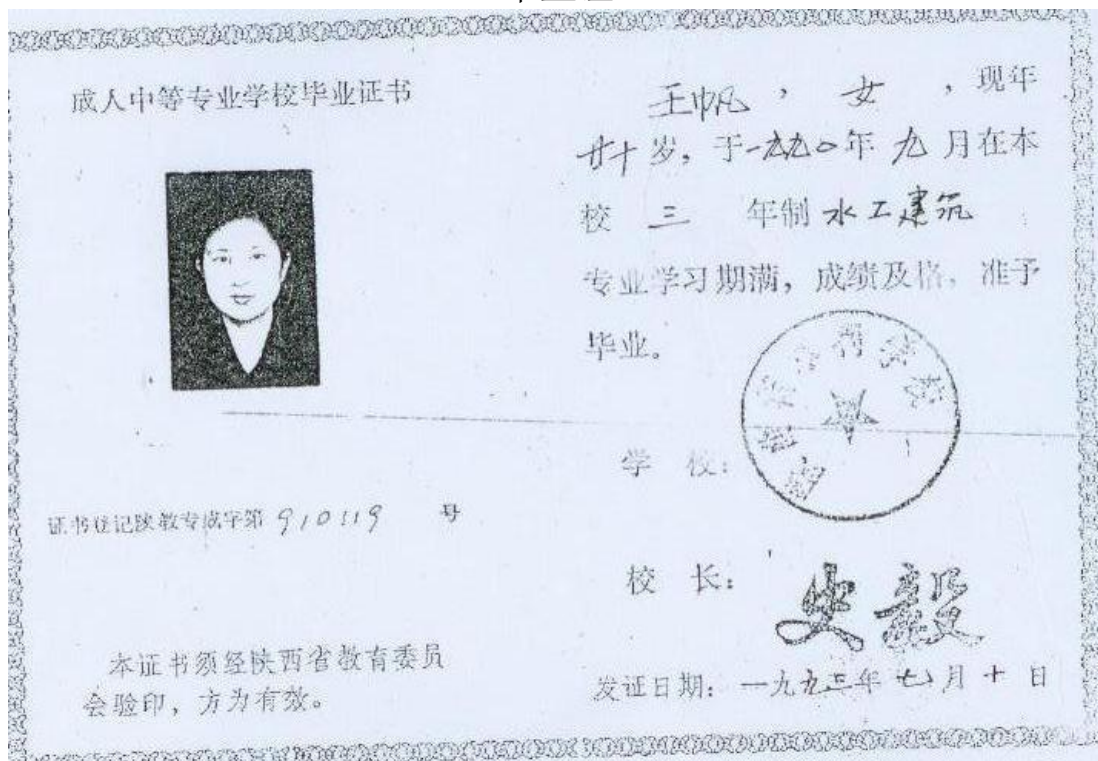 成人中等专业学校毕业证书
证书登记陕教专成字第 910119 号
本证书须经陕西省教育委员
会验印，方为有效。
王帆，女，现年
廿十岁，于一九九〇年九月在本
校 三 年制 水工建筑
专业学习期满，成绩及格，准予
毕业。
学 校：
校 长：史毅
发证日期：一九九三年七月十日